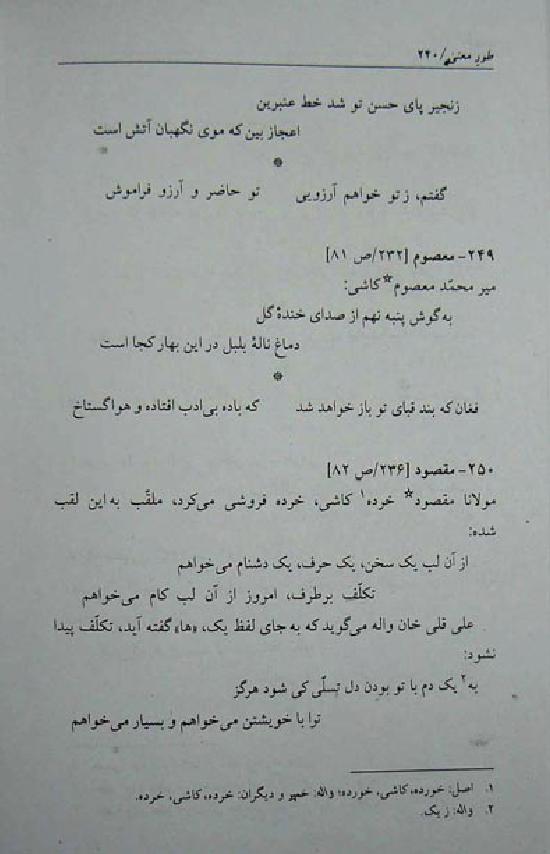 طور معنی/۲۴۰
زنجیر پای حسن تو شد خط عنبرین
اعجاز بین که موی نگهبان آتش است
*
گفتم، ز تو خواهم آرزویی تو حاضر و آرزو فراموش
۲۴۹- معصوم [۲۳۲/ص ۸۱]
میر محمّد معصوم* کاشی:
به گوش پنبه نهم از صدای خندهٔ گل
دماغ نالهٔ بلبل در این بهار کجا است
*
فغان که بند قبای تو باز خواهد شد که باده بی‌ادب افتاده و هوا گستاخ
۲۵۰- مقصود [۲۳۶/ص ۸۲]
مولانا مقصود* خرده۱ کاشی، خرده فروشی می‌کرد، ملقّب به این لقب
شده:
از آن لب یک سخن، یک حرف، یک دشنام می‌خواهم
تکلّف برطرف، امروز از آن لب کام می‌خواهم
علی قلی خان واله می‌گوید که به جای لفظ یک، «ها» گفته آید، تکلّف پیدا
نشود:
به۲ یک دم با تو بودن دل تسلّی کی شود هرگز
ترا با خویشتن می‌خواهم و بسیار می‌خواهم
۱. اصل: خورده، کاشی، خورده؛ واله: و دیگران: خرده، کاشی، خرده.
۲. واله: ز یک.